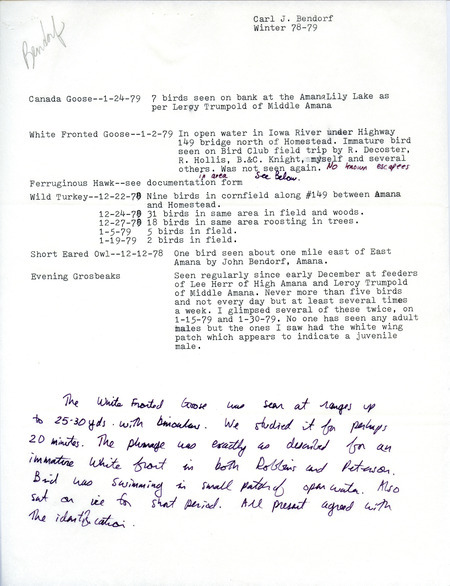 Carl J. Bendorf
Winter 78-79
Bendorf
Canada Goose--1-24-79 7 birds seen on bank at the AmanaLily Lake as
per Leroy Trumpold of Middle Amana
White Fronted Goose--1-2-79 In open water in Iowa River under Highway
149 bridge north of Homestead. Immature bird
seen on Bird Club field trip by R. Decoster,
R. Hollis, B.&C. Knight, myself and several
others. Was not seen again. No known escapees
in area See below.
Ferruginous Hawk--see documentation form
Wild Turkey--12-22-78 Nine birds in cornfield along #149 between Amana
and Homestead.
12-24-78 31 birds in same area in field and woods.
12-27-78 18 birds in same area roosting in trees.
1-5-79 5 birds in field.
1-19-79 2 birds in field.
Short Eared Owl--12-12-78 One bird seen about one mile east of East
Amana by John Bendorf, Amana.
Evening Grosbeaks Seen regularly since early December at feeders
of Lee Herr of High Amana and Leroy Trumpold
of Middle Amana. Never more than five birds
and not every day but at least several times
a week. I glimpsed several of these twice, on
1-15-79 and 1-30-79. No one has seen any adult
males but the ones I saw had the white wing
patch which appears to indicate a juvenile
male.
The White Fronted Goose was seen at ranges up
to 25-30 yds. with binoculars. We studied it for perhaps
20 minutes. The plumage was exactly as described for an
immature White front in both Robbins and Peterson.
Bird was swimming in small patch of open water. Also
sat on ice for short period. All present agreed with
the identification.